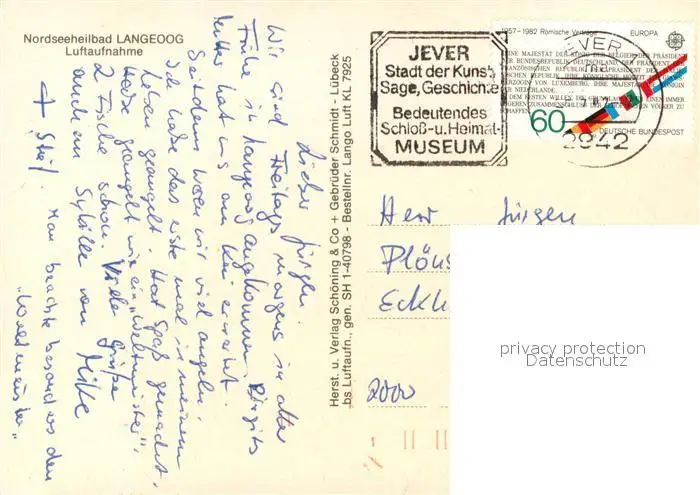 Nordseeheilbad LANGEOOG
Luftaufnahme
Lieber Jürgen.
Wir sind Freitags morgens in aller
Frühe in Langeoog angekommen. Birgits
hat uns am erwartet.
Seitdem waren wir viel angeln.
Ich habe das erste mal in meinem
Leben geangelt. Hat Spaß gemacht.
Habe geangelt wie ein „Weltmeister".
2 Fische schon. Viele Grüße
auch an Sybille von Mike
+ Stef. Man beachte besonders den
„Weltmeister"
Herst. u. Verlag Schöning & Co + Gebrüder Schmidt - Lübeck
bs Luftaufn., gen. SH 1-40798 - Bestellnr. Lango Luft KL 7925
JEVER
Stadt der Kunst
Sage, Geschichte
Bedeutendes
Schloß-u. Heimat-
MUSEUM
1957-1982 Römische Verträge EUROPA
JEVER
60
DEUTSCHE BUNDESPOST
2942
Herr Jürgen
Plöns
Eckh
2000
privacy protection
Datenschutz